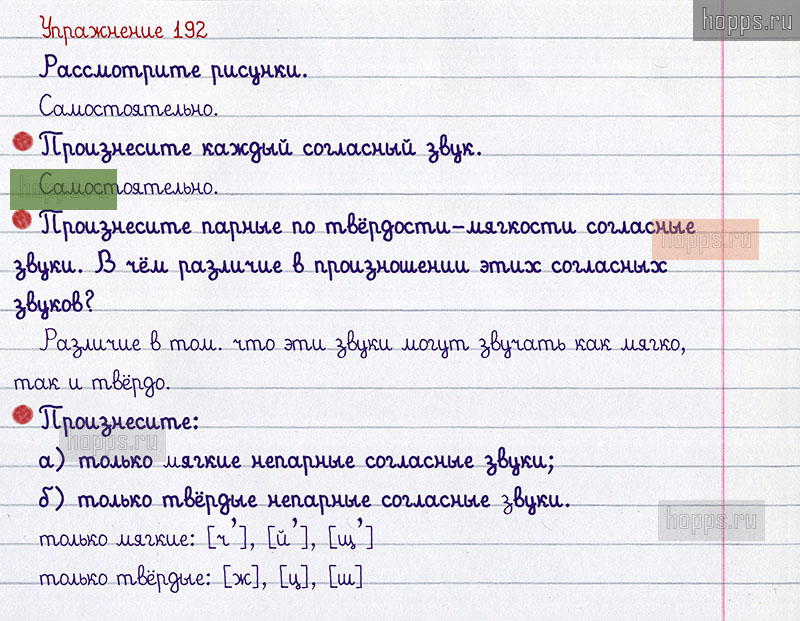 hopps.ru
Упражнение 192
Рассмотрите рисунки.
Самостоятельно.
Произнесите каждый согласный звук.
hopps.ru
Самостоятельно.
Произнесите парные по твёрдости-мягкости согласные
hopps.ru
звуки. В чём различие в произношении этих согласных
звуков?
Различие в том. что эти звуки могут звучать как мягко,
так и твёрдо.
Произнесите:
hopps.ru
а) только мягкие непарные согласные звуки;
б) только твёрдые непарные согласные звуки.
hopps.ru
только мягкие: [ч’], [й’], [щ’]
только твёрдые: [ж], [ц], [ш]